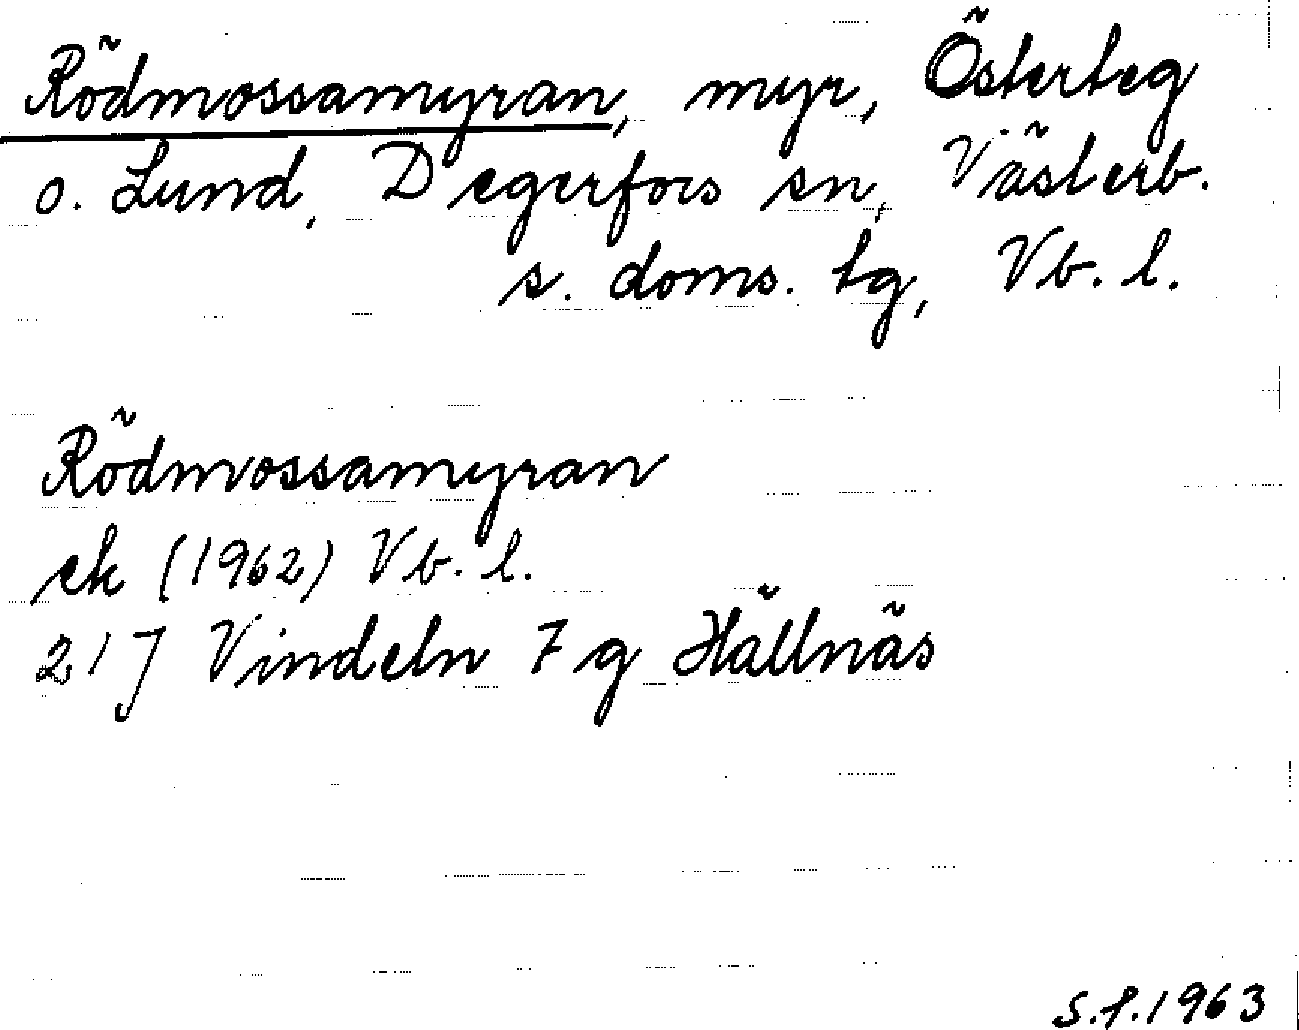 Rödmossamyran, myr, Österteg
o. Lund, Degerfors sn, Västerb.
s. doms. tg, Vb. l.
Rödmossamyran
ek (1962) Vb. l.
21J Vindeln 7 g Hällnäs
S.f.1963